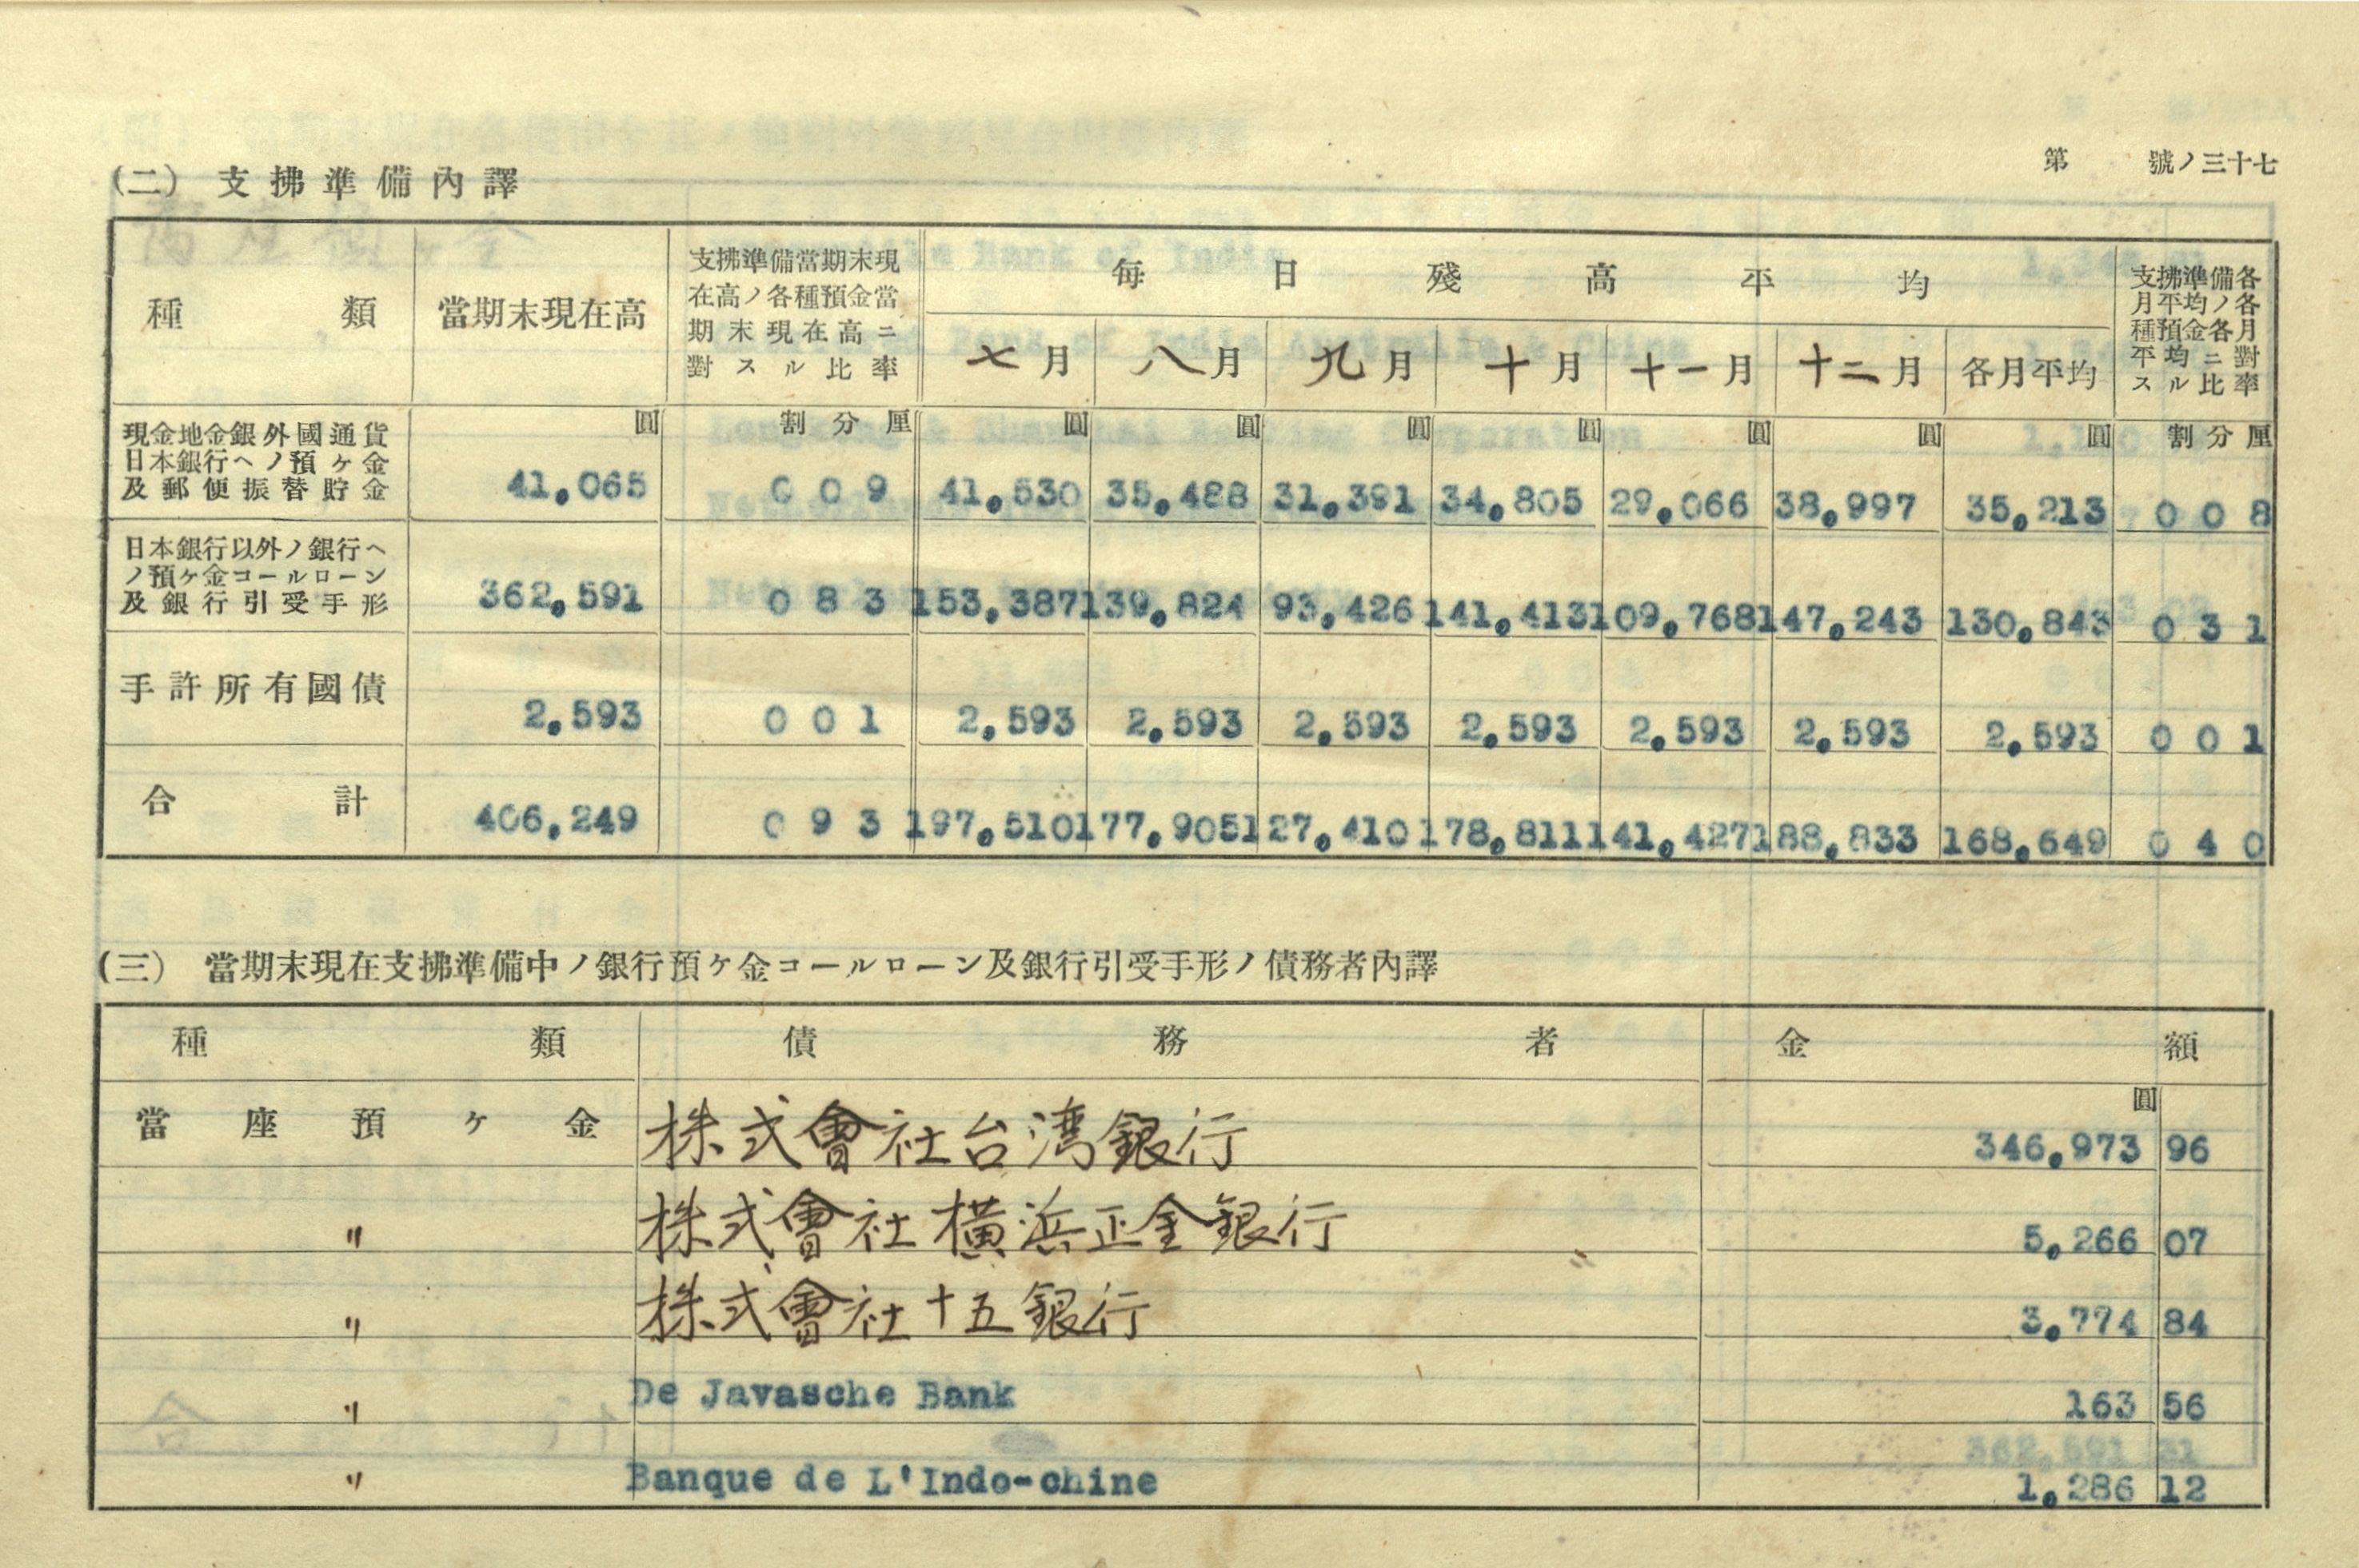 第 號ノ三十七
(二) 支拂準備內譯
種類 當期末現在高 支拂準備當期末現在高ノ各種預金當期末現在高ニ對スル比率 每日殘高平均 支拂準備各月平均ノ各種預金各月平均ニ對スル比率
七月 八月 九月 十月 十一月 十二月 各月平均
圓 割分厘 圓 圓 圓 圓 圓 圓 圓 割分厘
現金地金銀外國通貨
日本銀行ヘノ預ヶ金
及郵便振替貯金 41,065 0 0 9 41,530 35,488 31,391 34,805 29,066 38,997 35,213 0 0 8
日本銀行以外ノ銀行ヘ
ノ預ヶ金コールローン
及銀行引受手形 362,591 0 8 3 153,387 139,824 93,426 141,413 109,768 147,243 130,843 0 3 1
手許所有國債 2,593 0 0 1 2,593 2,593 2,593 2,593 2,593 2,593 2,593 0 0 1
合計 406,249 0 9 3 197,510 177,905 127,410 178,811 141,427 188,833 168,649 0 4 0
(三) 當期末現在支拂準備中ノ銀行預ヶ金コールローン及銀行引受手形ノ債務者內譯
種類 債務者 金額
圓
當座預ヶ金 株式會社台湾銀行 346,973 96
〃 株式會社橫浜正金銀行 5,266 07
〃 株式會社十五銀行 3,774 84
〃 De Javasche Bank 163 56
〃 Banque de L'Indo-chine 1,286 12